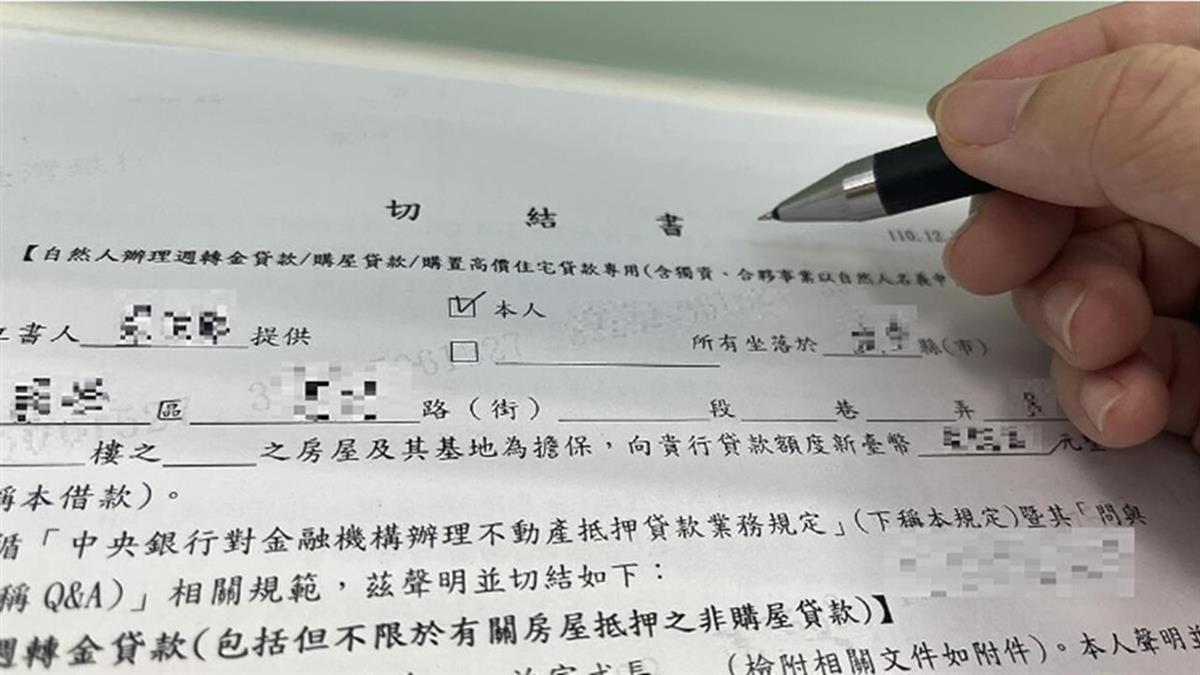 切 結 書
110.12.
【自然人辦理週轉金貸款/購屋貸款/購置高價住宅貸款專用(含獨資、合夥事業以自然人名義申
立書人 提供 本人 所有坐落於 縣(市)
區 路(街) 段 巷 弄
樓之 之房屋及其基地為擔保,向貴行貸款額度新臺幣 元
稱本借款)。
循「中央銀行對金融機構辦理不動產抵押貸款業務規定」(下稱本規定)暨其「問與
稱Q&A)」相關規範,茲聲明並切結如下:
週轉金貸款(包括但不限於有關房屋抵押之非購屋貸款)】
(檢附相關文件如附件)。本人聲明並